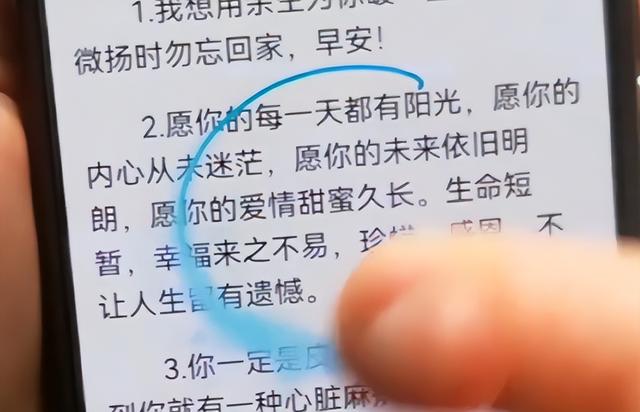 1.我想用余生为你暖一
微扬时勿忘回家，早安！
2.愿你的每一天都有阳光，愿你的
内心从未迷茫，愿你的未来依旧明
朗，愿你的爱情甜蜜久长。生命短
暂，幸福来之不易，珍惜，感恩，不
让人生留有遗憾。
3.你一定是
到你就有一种心脏麻